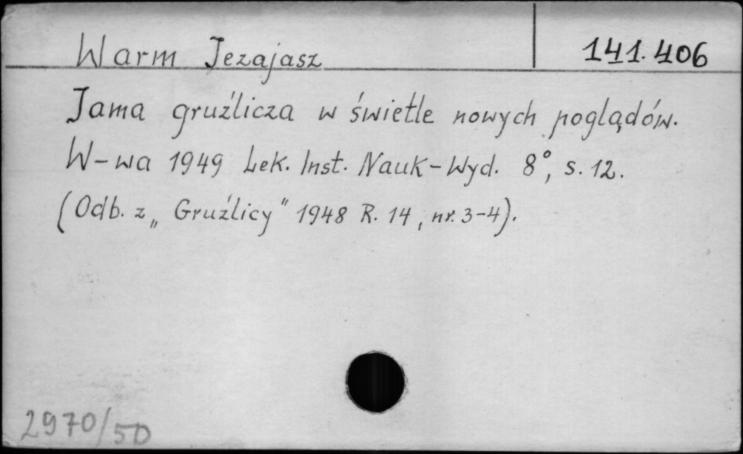 Warm Jezajasz 141.406
Jama gruźlicza w świetle nowych poglądów.
W-wa 1949 Lek. Inst. Nauk-Wyd. 8°, s. 12.
(Odb. z „Gruźlicy" 1948 R. 14, nr. 3-4).
2970/50